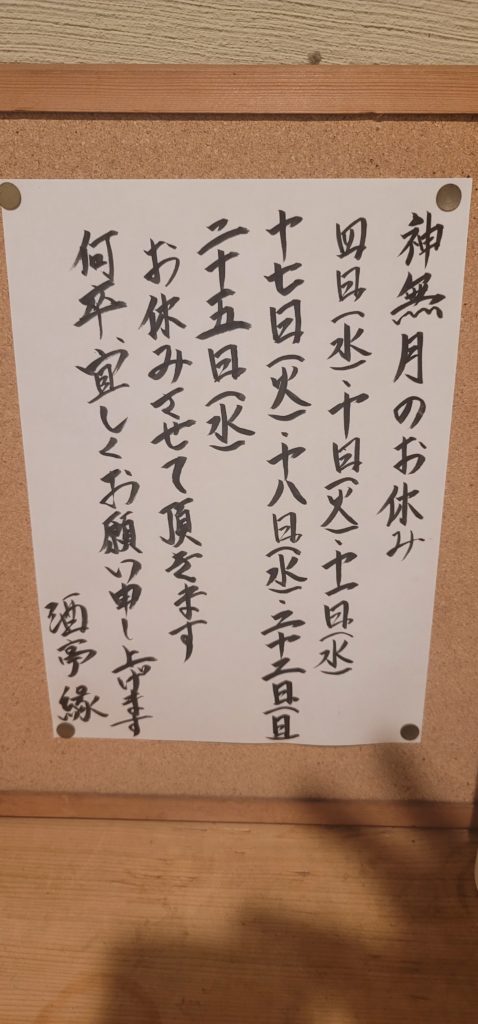 神無月のお休み
四日(水)、十日(火)、十一日(水)
十七日(火)、十八日(水)、二十二日(日
二十五日(水)
お休みさせて頂きます
何卒、宜しくお願い申し上げます
酒亭 縁